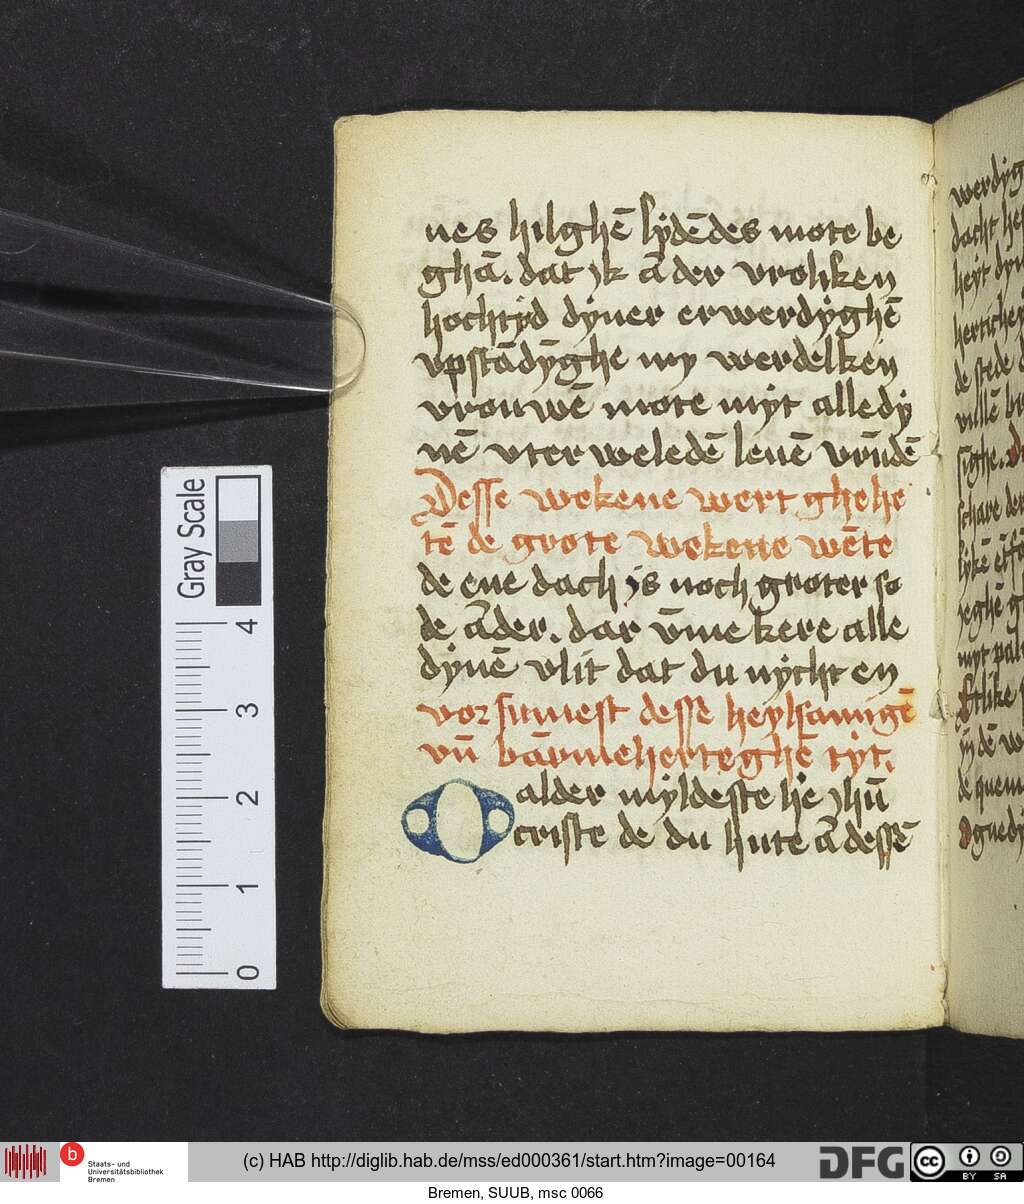 nes hilghē lydēdes mote be
ghā. dat ik ā der vroliken
hochtyd dyner erwerdyghē
vpstādyghe my werdelken
vrouwē mote myt alle dy
nē vter weledē leuē vrūdē
Desse wekene wert ghehe
tē de grote wekene wēte
de ene dach is noch groter so
de āder. dar vme kere alle
dynē vlit dat du nycht en
vor sumest desse heylsamigē
vn̄ bārmeherteghē tyt.
O alder myldeste he ihū
criste de du hute ā dessē
werdyg
dacht he
heyt dyn
de stede
schare der
Etlike
Gray Scale
4
3
2
1
0
b
Staats- und
Universitätsbibliothek
Bremen
(c) HAB http://diglib.hab.de/mss/ed000361/start.htm?image=00164
DFG
cc
BY SA
Bremen, SUUB, msc 0066